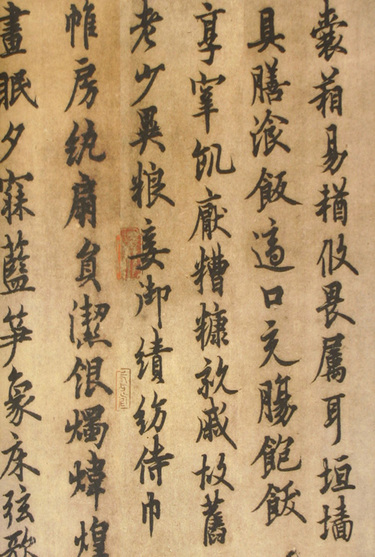 囊箱易輶攸畏屬耳垣墻
具膳飡飯適口充腸飽飫
享宰飢厭糟糠親戚故舊
老少異粮妾御績紡侍巾
帷房紈扇員潔銀燭煒煌
晝眠夕寐藍笋象床弦歌